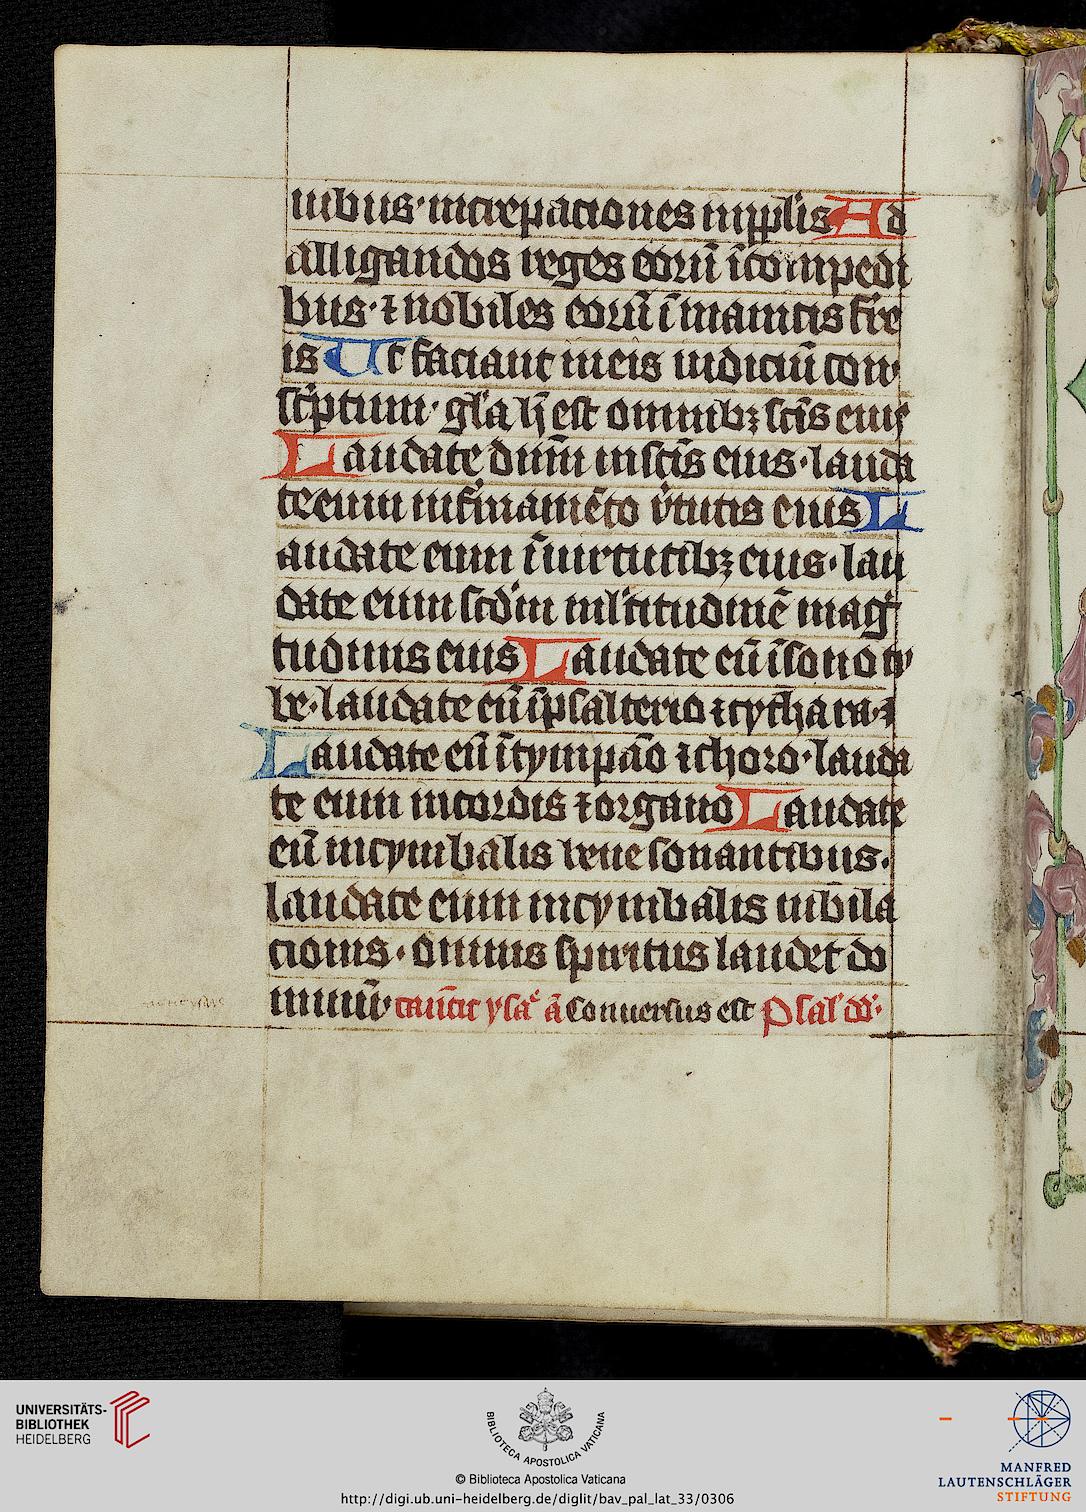 nibus· increpationes inpplis Ad
alligandos reges eorū īcompedi
bus· ⁊ nobiles eorū ī manicis fer̄re
is Ut faciant in eis iudiciū con
scͥptum· gl̄a h̄ est omnibꝫ scīs eius
Laudate dn̄m in scīs eius· lauda
te eum in firmamēto v̓tutis eius L
audate eum ī uirtutibꝫ eius· lau
date eum scd̓m ml̓titudinē mag
tudinis eius Laudate eū ī sono tu
be· laudate eū ī psalterio ⁊ cythara·
Laudate eū ī tympāo ⁊ choro· lauda
te eum in cordis ⁊ organo Laudate
eū in cymbalis bene sonantibus·
laudate eum in cymbalis iubila
cionis· omnis spiritus laudet do
minū· cantic̄ ysaᵉ ā Conuersus est Psal̓ dd̓·
UNIVERSITÄTS-
BIBLIOTHEK
HEIDELBERG
BIBLIOTECA APOSTOLICA VATICANA
© Biblioteca Apostolica Vaticana
http://digi.ub.uni-heidelberg.de/diglit/bav_pal_lat_33/0306
MANFRED
LAUTENSCHLÄGER
STIFTUNG